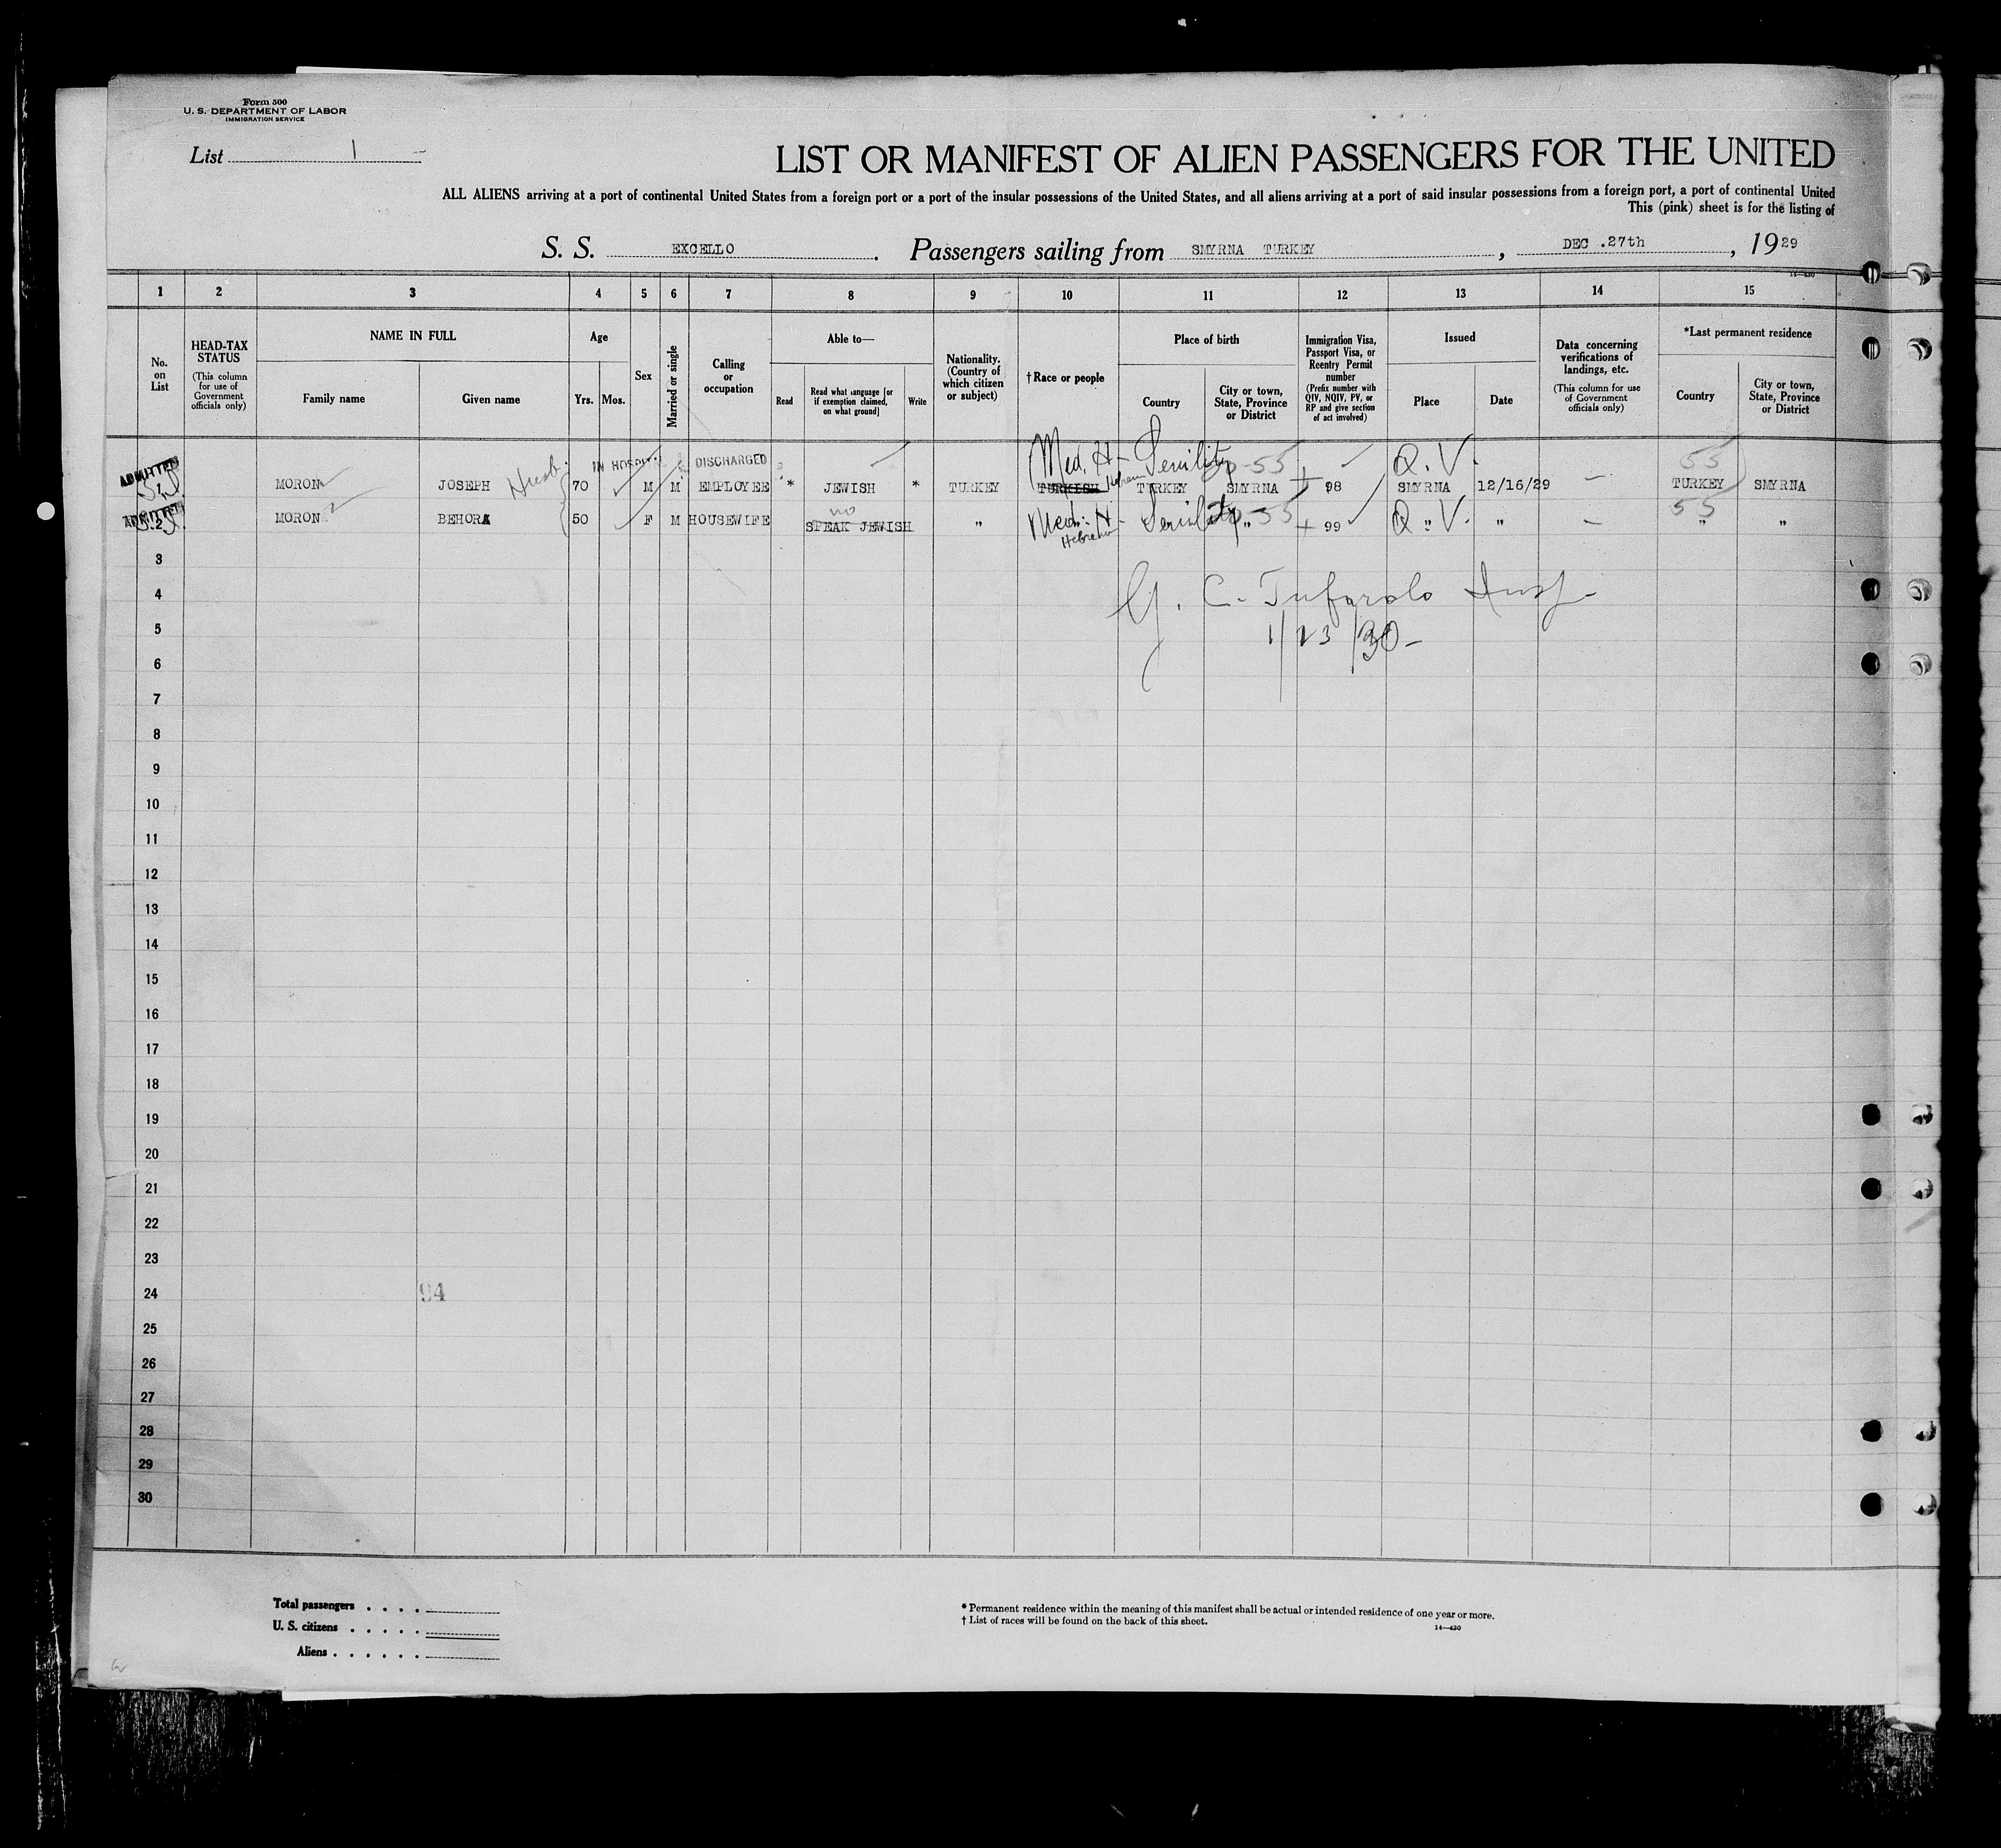 Form 500
U. S. DEPARTMENT OF LABOR
IMMIGRATION SERVICE
List 1
LIST OR MANIFEST OF ALIEN PASSENGERS FOR THE UNITED
ALL ALIENS arriving at a port of continental United States from a foreign port or a port of the insular possessions of the United States, and all aliens arriving at a port of said insular possessions from a foreign port, a port of continental United
This (pink) sheet is for the listing of
S. S. EXCELLO . Passengers sailing from SMYRNA TURKEY , DEC .27th , 1929
14—430
1 2 3 4 5 6 7 8 9 10 11 12 13 14 15
No. on List
HEAD-TAX STATUS (This column for use of Government officials only)
NAME IN FULL
Family name
Given name
Age
Yrs. Mos.
Sex
Married or single
Calling or occupation
Able to—
Read
Read what language [or if exemption claimed, on what ground]
Write
Nationality. (Country of which citizen or subject)
†Race or people
Place of birth
Country
City or town, State, Province or District
Immigration Visa, Passport Visa, or Reentry Permit number (Prefix number with QIV, NQIV, PV, or RP and give section of act involved)
Issued
Place
Date
Data concerning verifications of landings, etc. (This column for use of Government officials only)
*Last permanent residence
Country
City or town, State, Province or District
ADMITTED Husb. IN HOSPITAL DISCHARGED Med. H- Senility Q. V. 55
1 MORON JOSEPH 70 M M EMPLOYEE * JEWISH * TURKEY TURKISH Hebrew TURKEY SMYRNA 98 SMYRNA 12/16/29 — TURKEY SMYRNA
ADMITTED no 55
2 MORON BEHORA 50 F M HOUSEWIFE SPEAK JEWISH " Med. H- Hebrew Senility " 99 Q " V. " — " "
3
4
G. C. Tufarolo Insp.
5
1/23/30-
6
7
8
9
10
11
12
13
14
15
16
17
18
19
20
21
22
23
24 94
25
26
27
28
29
30
Total passengers . . . .
U. S. citizens . . . . .
Aliens . . . . . .
* Permanent residence within the meaning of this manifest shall be actual or intended residence of one year or more.
† List of races will be found on the back of this sheet.
14—430